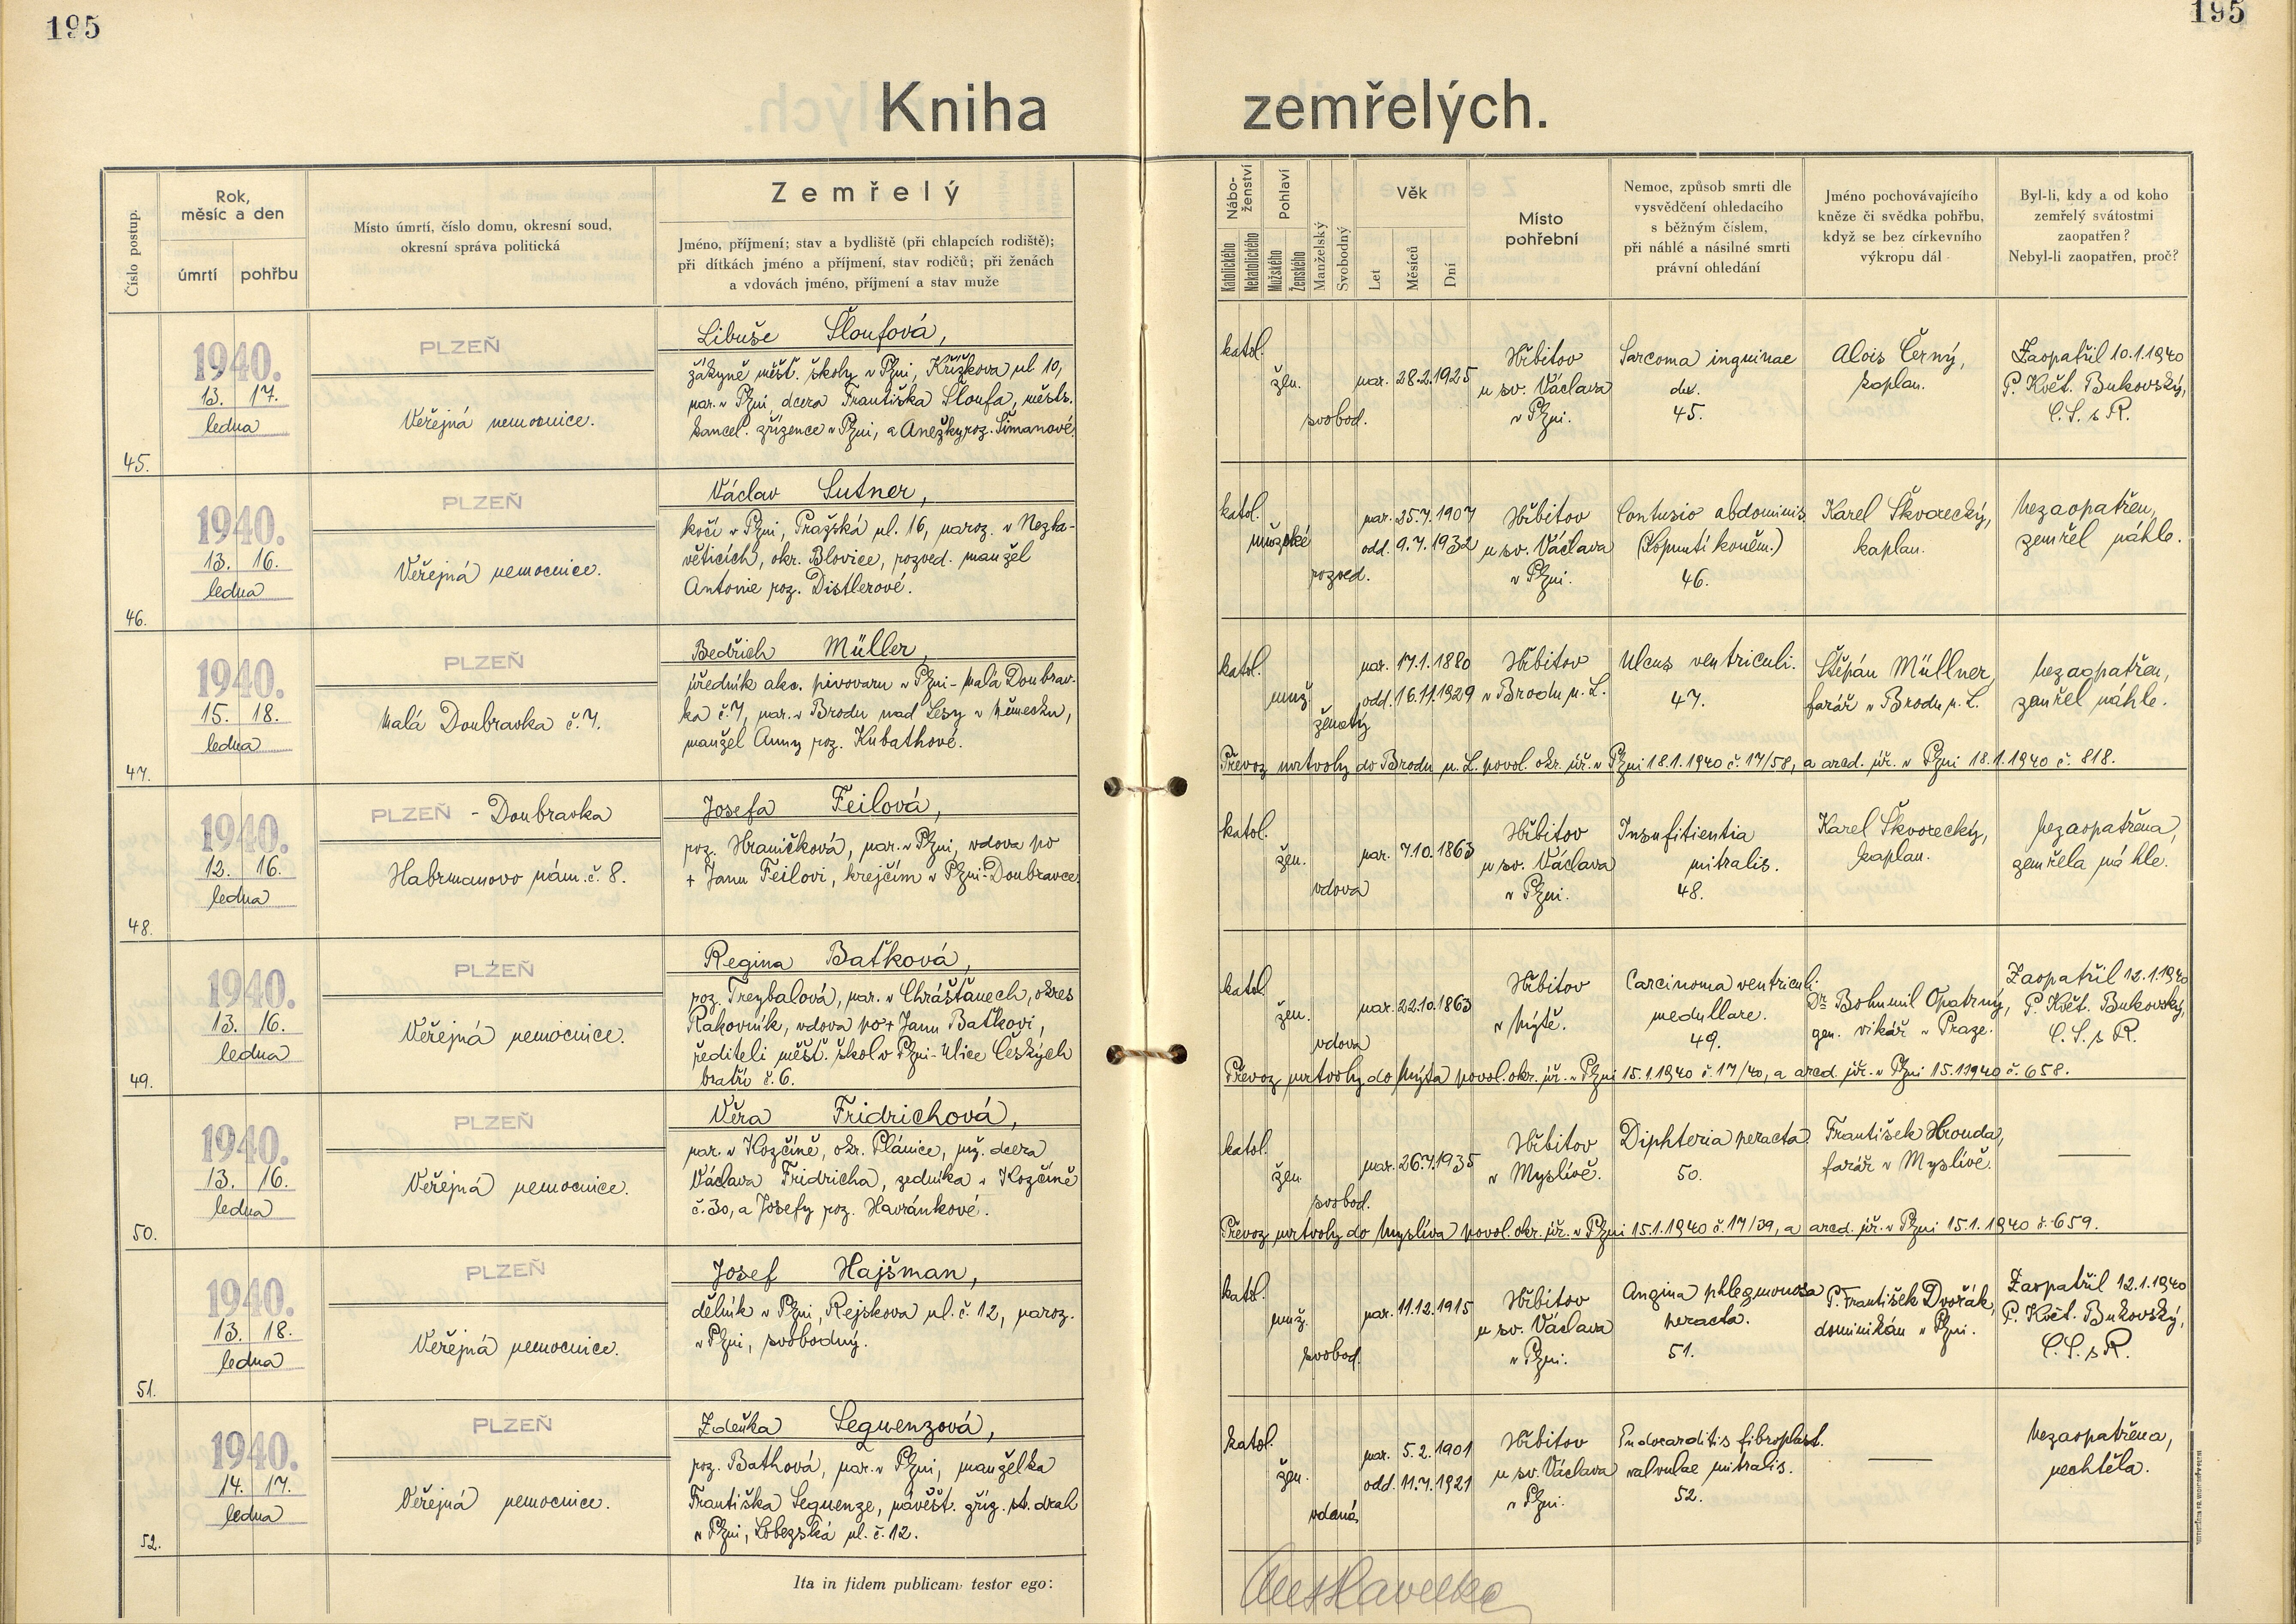 195
195
Kniha zemřelých.
Číslo postup.
Rok,
měsíc a den
úmrtí
pohřbu
Místo úmrtí, číslo domu, okresní soud,
okresní správa politická
Zemřelý
Jméno, příjmení; stav a bydliště (při chlapcích rodiště);
při dítkách jméno a příjmení, stav rodičů; při ženách
a vdovách jméno, příjmení a stav muže
Nábo-
ženství
Katolického
Nekatolického
Pohlaví
Mužského
Ženského
Manželský
Svobodný
Věk
Let
Měsíců
Dní
Místo
pohřební
Nemoc, způsob smrti dle
vysvědčení ohledacího
s běžným číslem,
při náhlé a násilné smrti
právní ohledání
Jméno pochovávajícího
kněze či svědka pohřbu,
když se bez církevního
výkropu dál
Byl-li, kdy a od koho
zemřelý svátostmi
zaopatřen?
Nebyl-li zaopatřen, proč?
45.
1940.
13. 17.
ledna
PLZEŇ
Veřejná nemocnice.
Libuše Šloufová,
žákyně měšť. školy v Plzni, Křižkova ul 10,
nar. v Plzni dcera Františka Šloufa, městs.
kancel. zřízence v Plzni, a Anežky roz. Šimanové.
katol.
žen.
svobod.
nar. 28.2.1925
Hřbitov
u sv. Václava
v Plzni.
Sarcoma inguinae
dx.
45.
Alois Černý,
kaplan.
Zaopatřil 10.1.1940
P. Květ. Bukovský,
C. S. s R.
46.
1940.
13. 16.
ledna
PLZEŇ
Veřejná nemocnice.
Václav Sutner,
kočí v Plzni, Pražská ul. 16, naroz. v Nezba-
věticích, okr. Blovice, rozved. manžel
Antonie roz. Distlerové.
katol.
mužské
rozved.
nar. 25.7.1907
odd. 9.7.1932
Hřbitov
u sv. Václava
v Plzni.
Contusio abdominis
(Kopnutí koněm.)
46.
Karel Škvorecký,
kaplan.
Nezaopatřen,
zemřel náhle.
47.
1940.
15. 18.
ledna
PLZEŇ
Malá Doubravka č. 7.
Bedřich Müller,
úředník akc. pivovaru v Plzni - Malá Doubrav-
ka č. 7, nar. v Brodu nad Lesy v Německu,
manžel Anny roz. Kubathové.
katol.
muž.
ženatý
nar. 17.1.1880
odd. 16.11.1929
Hřbitov
v Brodu n. L.
Ulcus ventriculi.
47.
Štěpán Müllner,
farář v Brodu n. L.
Nezaopatřen,
zemřel náhle.
Převoz mrtvoly do Brodu n. L. povol. okr. úř. v Plzni 18.1.1940 č. 17/58, a arcd. úř. v Plzni 18.1.1940 č. 818.
48.
1940.
12. 16.
ledna
PLZEŇ - Doubravka
Habrmanovo nám. č. 8.
Josefa Feilová,
roz. Hraničková, nar. v Plzni, vdova po
+ Janu Feilovi, krejčím v Plzni-Doubravce.
katol.
žen.
vdova
nar. 7.10.1863
Hřbitov
u sv. Václava
v Plzni.
Insufitientia
mitralis.
48.
Karel Škvorecký,
kaplan.
Nezaopatřena,
zemřela náhle.
49.
1940.
13. 16.
ledna
PLZEŇ
Veřejná nemocnice.
Regina Baťková,
roz. Treybalová, nar. v Chrášťanech, okres
Rakovník, vdova po + Janu Baťkovi,
řediteli měšť. škol v Plzni - Ulice Českých
bratří č. 6.
katol.
žen.
vdova
nar. 22.10.1863
Hřbitov
v Mýtě.
Carcinoma ventriculi
medullare.
49.
Dr. Bohumil Opatrný,
gen. vikář v Praze.
Zaopatřil 12.1.1940
P. Květ. Bukovský,
C. S. s R.
Převoz mrtvoly do Mýta povol. okr. úř. v Plzni 15.1.1940 č. 17/40, a arcd. úř. v Plzni 15.1.1940 č. 658.
50.
1940.
13. 16.
ledna
PLZEŇ
Veřejná nemocnice.
Věra Fridrichová,
nar. v Kozčíně, okr. Plánice, mž. dcera
Václava Fridricha, zedníka v Kozčíně
č. 30, a Josefy roz. Havránkové.
katol.
žen.
svobod.
nar. 26.7.1935
Hřbitov
v Myslívě.
Diphteria peracta
50.
František Hrouda,
farář v Myslívě.
Převoz mrtvoly do Myslíva povol. okr. úř. v Plzni 15.1.1940 č. 17/39, a arcd. úř. v Plzni 15.1.1940 č. 659.
51.
1940.
13. 18.
ledna
PLZEŇ
Veřejná nemocnice.
Josef Hajšman,
dělník v Plzni, Rejskova ul. č. 12, naroz.
v Plzni, svobodný.
katol.
muž.
svobod.
nar. 11.12.1915
Hřbitov
u sv. Václava
v Plzni.
Angina phlegmonosa
peracta.
51.
P. František Dvořák,
dominikán v Plzni.
Zaopatřil 12.1.1940
P. Květ. Bukovský,
C. S. s R.
52.
1940.
14. 17.
ledna
PLZEŇ
Veřejná nemocnice.
Zdeňka Seguenzová,
roz. Bathová, nar. v Plzni, manželka
Františka Seguenze, návěšť. zříz. st. drah
v Plzni, Lobezská ul. č. 12.
katol.
žen.
vdaná
nar. 5.2.1901
odd. 11.7.1921
Hřbitov
u sv. Václava
v Plzni.
Endocarditis fibroplast.
valvulae mitralis.
52.
Nezaopatřena,
nechtěla.
Ita in fidem publicam testor ego: